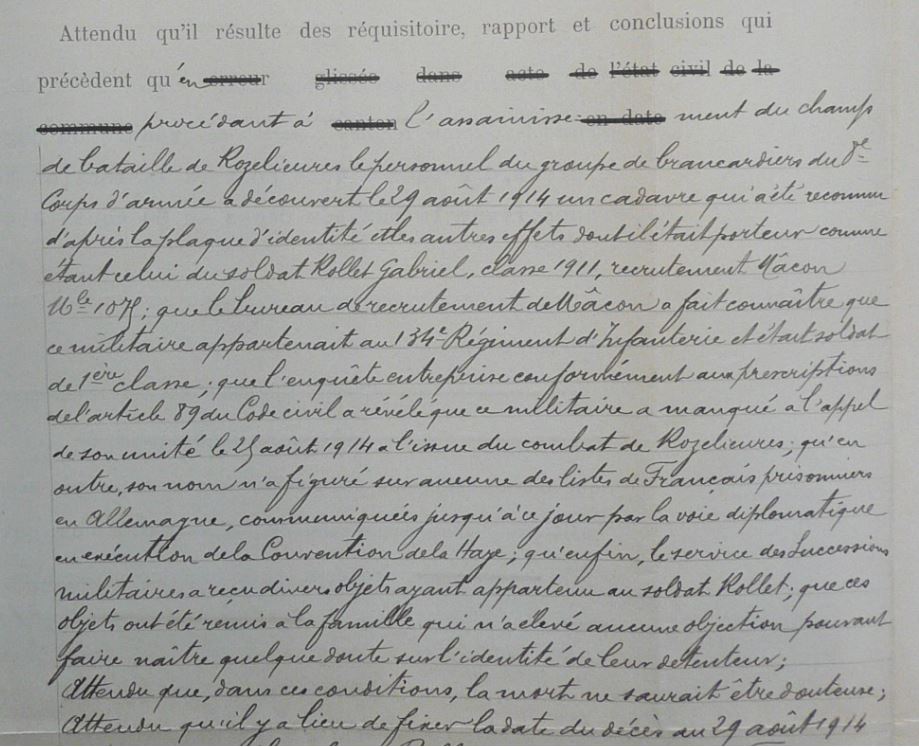 Attendu qu'il résulte des réquisitoire, rapport et conclusions qui
précèdent qu'en erreur glissée dans acte de l'état civil de la
commune procédant à canton l'assainisse- en date ment du champ
de bataille de Rozelieures le personnel du groupe de brancardiers du 8e
Corps d'armée a découvert le 29 août 1914 un cadavre qui a été reconnu
d'après la plaque d'identité et les autres effets dont il était porteur comme
étant celui du soldat Rollet Gabriel, classe 1911, recrutement Mâcon
Mle ; que le bureau de recrutement de Mâcon a fait connaître que
ce militaire appartenait au 134e Régiment d'Infanterie et était soldat
de 1ère classe ; que l'enquête entreprise conformément aux prescriptions
de l'article 89 du Code civil a révélé que ce militaire a manqué à l'appel
de son unité le 25 août 1914 à l'issue du combat de Rozelieures ; qu'en
outre, son nom n'a figuré sur aucune des listes de Français prisonniers
en Allemagne, communiquées jusqu'à ce jour par la voie diplomatique
en exécution de la Convention de la Haye ; qu'enfin, le service des Successions
militaires a reçu divers objets ayant appartenu au soldat Rollet ; que ces
objets ont été remis à la famille qui n'a élevé aucune objection pouvant
faire naître quelque doute sur l'identité de leur détenteur ;
Attendu que, dans ces conditions, la mort ne saurait être douteuse ;
Attendu qu'il y a lieu de fixer la date du décès au 29 août 1914